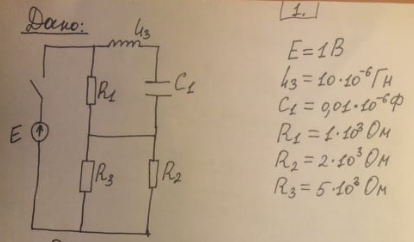 Дано:
1.
L₃
R₁
C₁
E
R₃
R₂
E = 1 В
L₃ = 10·10⁻⁶ Гн
C₁ = 0,01·10⁻⁶ Ф
R₁ = 1·10³ Ом
R₂ = 2·10³ Ом
R₃ = 5·10³ Ом